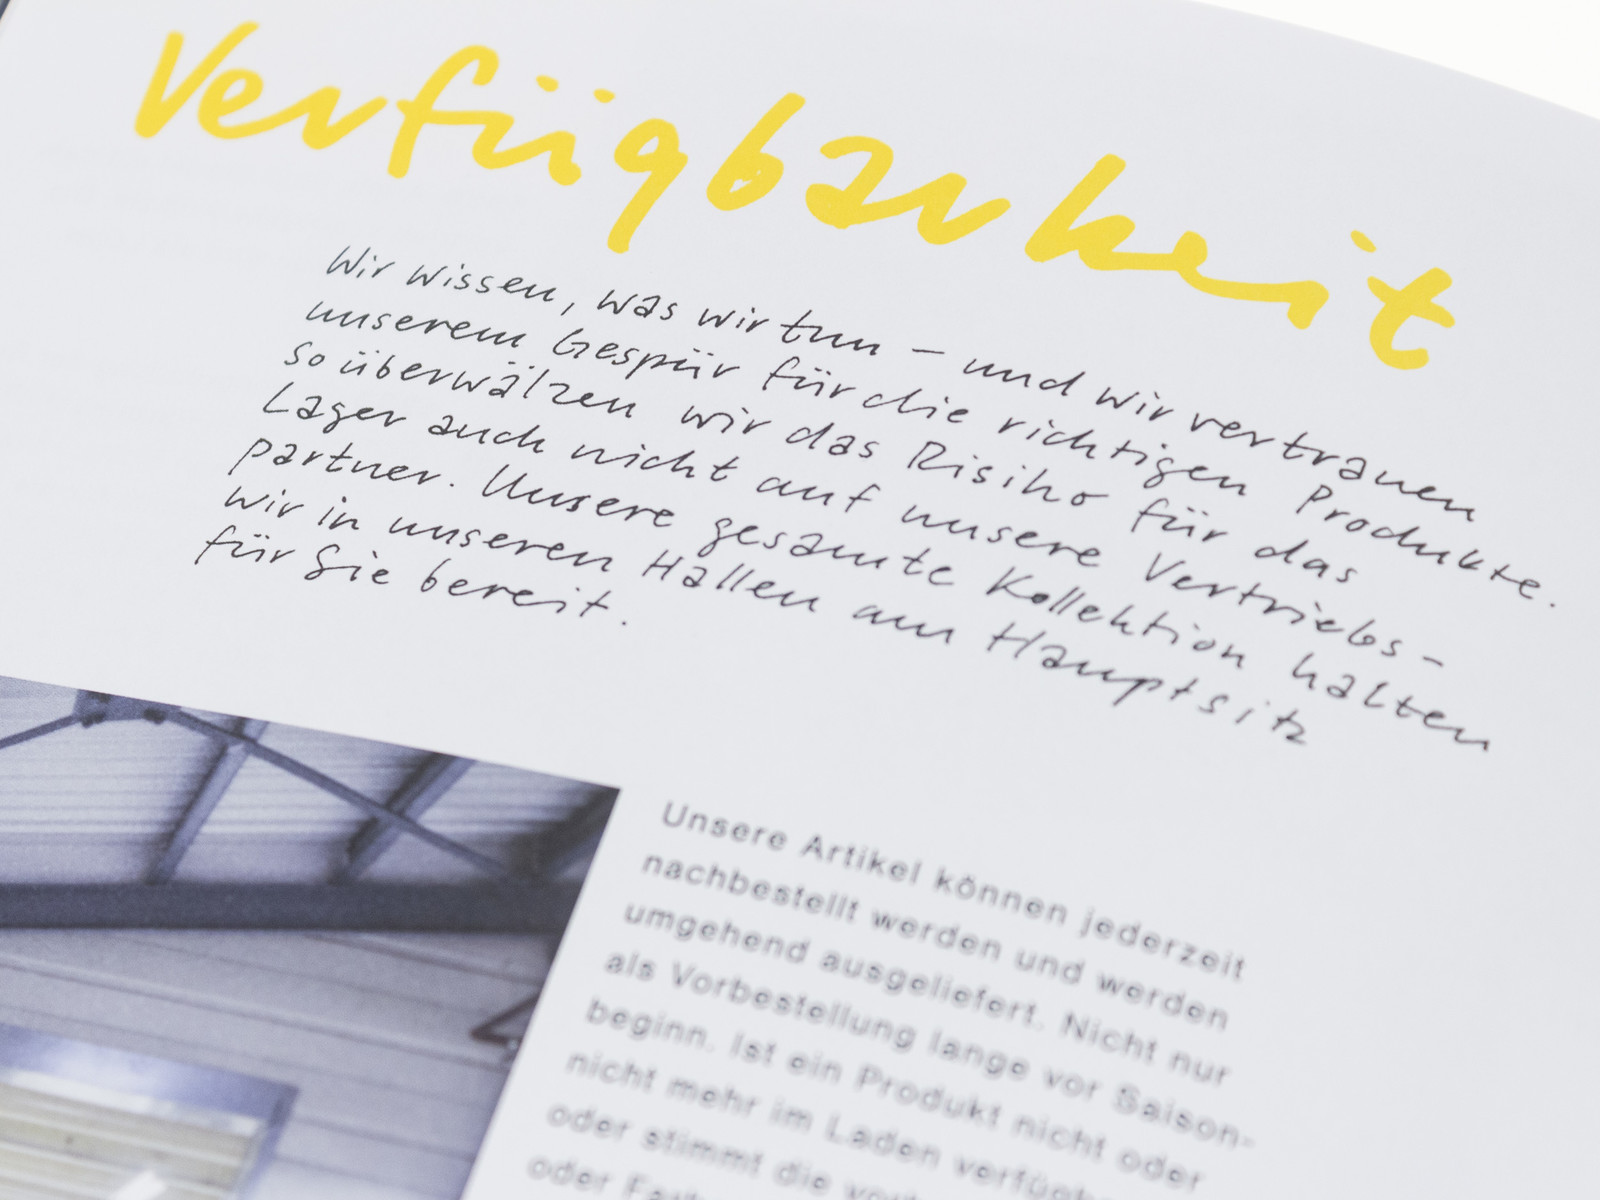 Verfügbarkeit
Wir wissen, was wir tun – und wir vertrauen
unserem Gespür für die richtigen Produkte.
So überwälzen wir das Risiko für das
Lager auch nicht auf unsere Vertriebs-
partner. Unsere gesamte Kollektion halten
wir in unseren Hallen am Hauptsitz
für Sie bereit.
Unsere Artikel können jederzeit
nachbestellt werden und werden
umgehend ausgeliefert. Nicht nur
als Vorbestellung lange vor Saison-
beginn. Ist ein Produkt nicht oder
nicht mehr im Laden
oder stimmt die
oder